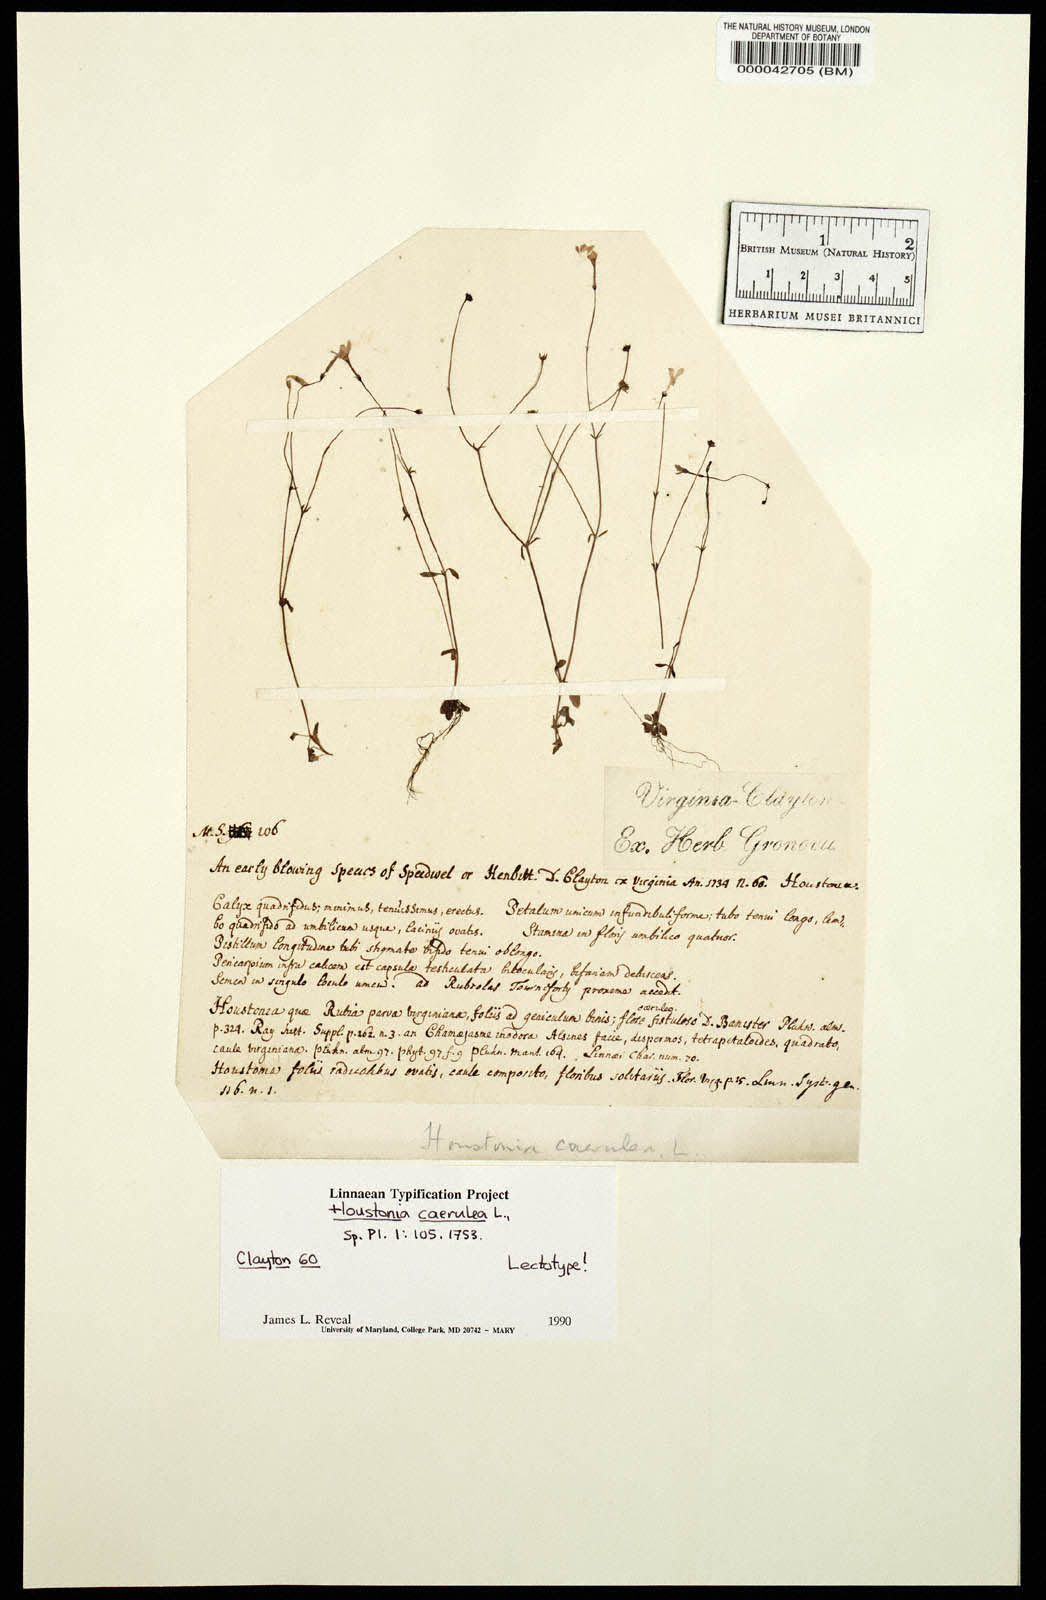 THE NATURAL HISTORY MUSEUM, LONDON
DEPARTMENT OF BOTANY
000042705 (BM)
1 2
BRITISH MUSEUM (NATURAL HISTORY)
1 2 3 4 5
HERBARIUM MUSEI BRITANNICI
Virginia - Clayton
Ex. Herb Gronovii
M.S. 106
An early blowing species of Speedwel or Henbitt. D. Clayton ex Virginia An. 1734 n. 60. Houstonia.
Calyx quadrifidus; minimus, tenuissimus, erectus. Petalum unicum infundibuliforme; tubo tenui longo, lim-
bo quadrifido ad umbilicum usque, laciniis ovatis. Stamina in floris umbilico quatuor.
Pistillum longitudine tubi stigmate bifido tenui oblongo.
Pericarpium infra calicem est capsula testiculata bilocularis, bifariam dehiscens.
Semen in singulo loculo unicum. ad Rubeolas Tournefortij proxime accedit.
Houstonia quæ Rubia parva virginiana, foliis ad geniculum binis; flore caeruleo fistuloso D. Banister Plukn. alm.
p. 324. Ray hist. Suppl. p. 262. n. 3. an Chamæjasme inodora Alsines facie, dispermos, tetrapetaloides, quadrato,
caule virginiana. Plukn. alm. 97. phyt. 97. f. 9 Plukn. mant 164. Linnæi Char. num. 70.
Houstonia foliis radicalibus ovatis, caule composito, floribus solitariis. Flor. Virg. p. 15. Linn. Syst. gen.
116. n. 1.
Houstonia caerulea, L.
Linnaean Typification Project
Houstonia caerulea L.,
Sp. Pl. 1: 105. 1753.
Clayton 60 Lectotype!
James L. Reveal 1990
University of Maryland, College Park, MD 20742 – MARY